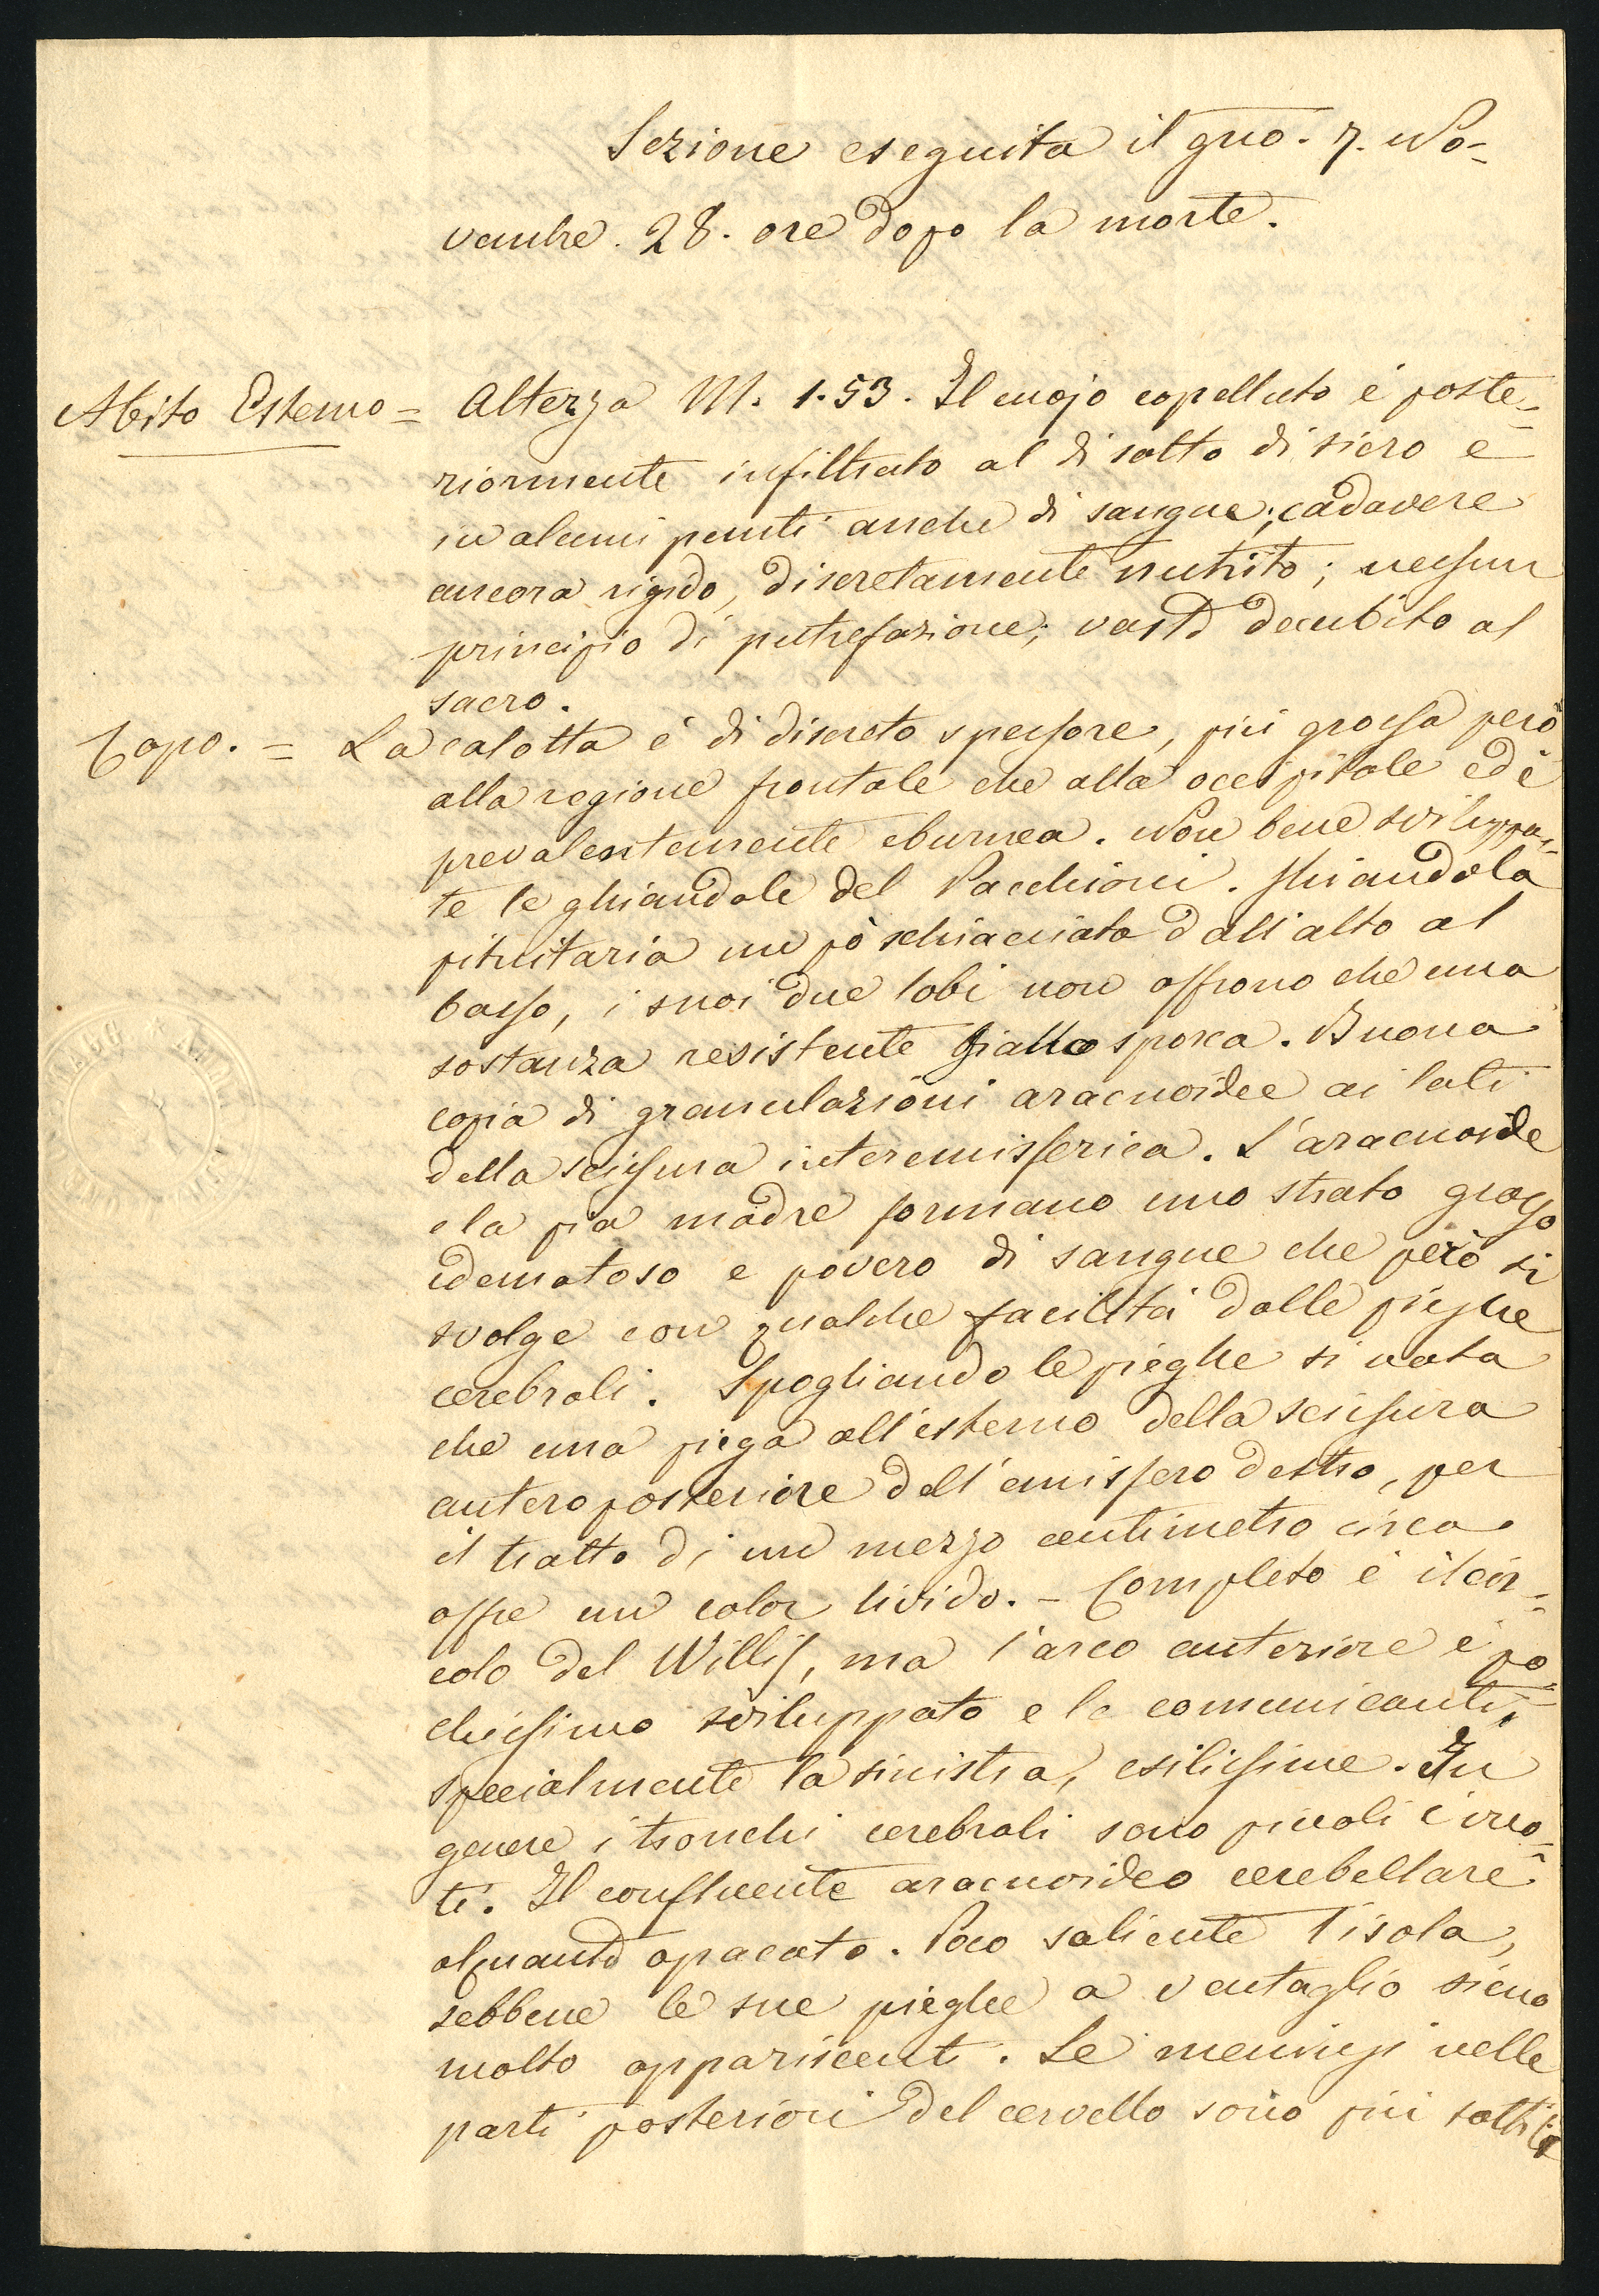 Sezione eseguita il gno. 7. No-
vembre. 28. ore dopo la morte.
Abito Esterno = Altezza M. 1.53. Il cuojo capelluto è poste-
riormente infiltrato al di sotto di siero e
in alcuni punti anche di sangue; cadavere
ancora rigido, discretamente nutrito; nessun
principio di putrefazione; vasto decubito al
sacro.
Capo. = La calotta è di discreto spessore, più grossa però
alla regione frontale che alla occipitale ed è
prevalentemente eburnea. Non bene sviluppa-
te le ghiandole del Pacchioni. Ghiandola
pituitaria un pò schiacciata dall'alto al
basso, i suoi due lobi non offrono che una
sostanza resistente giallo sporca. Buona
copia di granulazioni aracnoidee ai lati
della scissura interemisferica. L'aracnoide
e la pia madre formano uno strato grosso
edematoso e povero di sangue che però si
svolge con qualche facilità dalle pieghe
cerebrali. Spogliando le pieghe si nota
che una piega all'esterno della scissura
antero posteriore dell'emisfero destro, per
il tratto di un mezzo centimetro circa
offre un color livido. - Completo è il cir-
colo del Willis, ma l'arco anteriore è po-
chissimo sviluppato e le comunicanti,
specialmente la sinistra, esilissime. In
genere i tronchi cerebrali sono piccoli e vuo-
ti. Il confluente aracnoideo cerebellare
alquanto opacato. Poco saliente l'isola,
sebbene le sue pieghe a ventaglio sieno
molto appariscenti. Le meningi nelle
parti posteriori del cervello sono più sottili